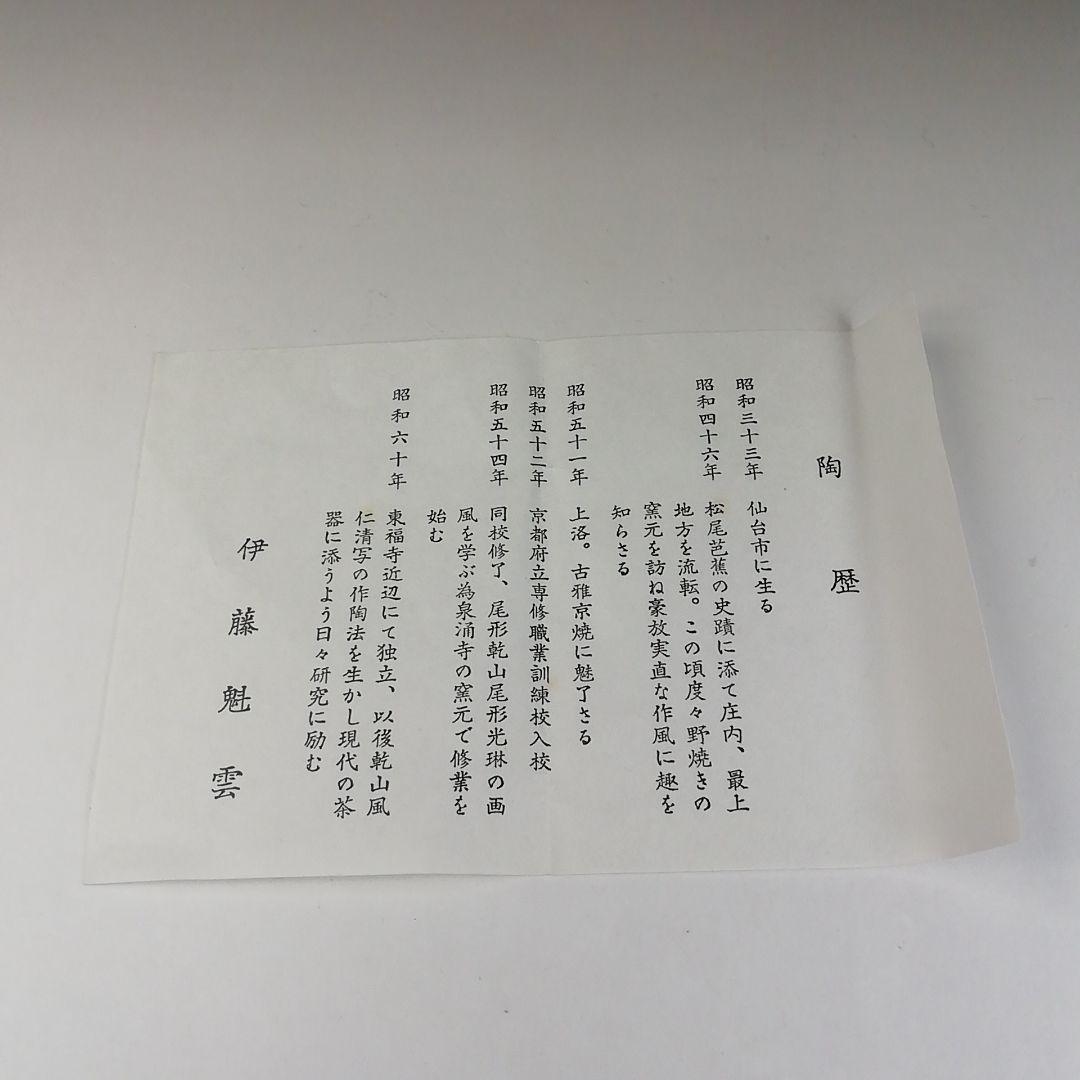 陶歴
昭和三十三年 仙台市に生る
昭和四十六年 松尾芭蕉の史蹟に添て庄内、最上
地方を流転。この頃度々野焼きの
窯元を訪ね豪放実直な作風に趣を
知らさる
昭和五十一年 上洛。古雅京焼に魅了さる
昭和五十二年 京都府立専修職業訓練校入校
昭和五十四年 同校修了、尾形乾山尾形光琳の画
風を学ぶ為泉涌寺の窯元で修業を
始む
昭和六十年 東福寺近辺にて独立、以後乾山風
仁清写の作陶法を生かし現代の茶
器に添うよう日々研究に励む
伊藤魁雲